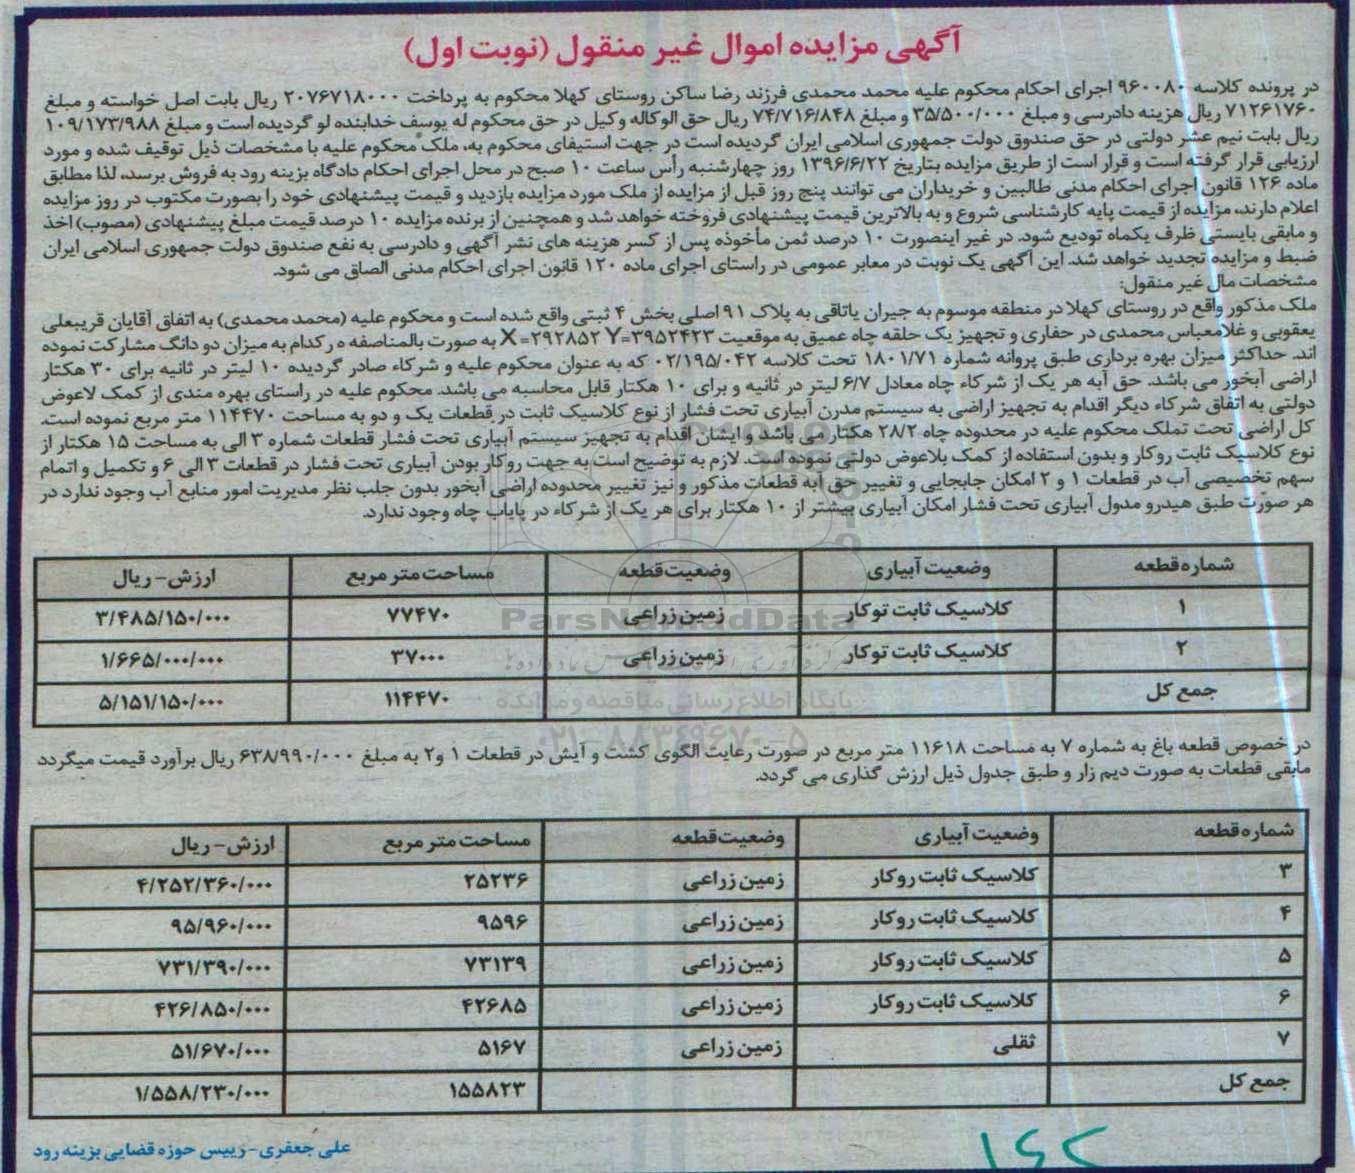 آگهی مزایده اموال غیر منقول (نوبت اول)
در پرونده کلاسه ۹۶۰۰۸۰ اجرای احکام محکوم علیه محمد محمدی فرزند رضا ساکن روستای کهلا محکوم به پرداخت ۲۰۷۶۷۱۸۰۰۰ ریال بابت اصل خواسته و مبلغ
۷۱۲۶۱۷۶۰ ریال هزینه دادرسی و مبلغ ۳۵/۵۰۰/۰۰۰ و مبلغ ۷۴/۷۱۶/۸۴۸ ریال حق الوکاله وکیل در حق محکوم له یوسف خدابنده لو گردیده است و مبلغ ۱۰۹/۱۷۳/۹۸۸
ریال بابت نیم عشر دولتی در حق صندوق دولت جمهوری اسلامی ایران گردیده است در جهت استیفای محکوم به، ملک محکوم علیه با مشخصات ذیل توقیف شده و مورد
ارزیابی قرار گرفته است و قرار است از طریق مزایده بتاریخ ۱۳۹۶/۶/۲۲ روز چهارشنبه رأس ساعت ۱۰ صبح در محل اجرای احکام دادگاه بزینه رود به فروش برسد، لذا مطابق
ماده ۱۲۶ قانون اجرای احکام مدنی طالبین و خریداران می توانند پنج روز قبل از مزایده از ملک مورد مزایده بازدید و قیمت پیشنهادی خود را بصورت مکتوب در روز مزایده
اعلام دارند، مزایده از قیمت پایه کارشناسی شروع و به بالاترین قیمت پیشنهادی فروخته خواهد شد و همچنین از برنده مزایده ۱۰ درصد قیمت مبلغ پیشنهادی (مصوب) اخذ
و مابقی بایستی ظرف یکماه تودیع شود. در غیر اینصورت ۱۰ درصد ثمن مأخوذه پس از کسر هزینه های نشر آگهی و دادرسی به نفع صندوق دولت جمهوری اسلامی ایران
ضبط و مزایده تجدید خواهد شد. این آگهی یک نوبت در معابر عمومی در راستای اجرای ماده ۱۲۰ قانون اجرای احکام مدنی الصاق می شود.
مشخصات مال غیر منقول:
ملک مذکور واقع در روستای کهلا در منطقه موسوم به جیران یاتاقی به پلاک ۹۱ اصلی بخش ۴ ثبتی واقع شده است و محکوم علیه (محمد محمدی) به اتفاق آقایان قربیعلی
یعقوبی و غلامعباس محمدی در حفاری و تجهیز یک حلقه چاه عمیق به موقعیت X=۲۹۲۸۵۲ Y=۳۹۵۲۴۲۳ به صورت بالمناصفه هر کدام به میزان دو دانگ مشارکت نموده
اند. حداکثر میزان بهره برداری طبق پروانه شماره ۱۸۰۱/۷۱ تحت کلاسه ۰۲/۱۹۵/۰۴۲ که به عنوان محکوم علیه و شرکاء صادر گردیده ۱۰ لیتر در ثانیه برای ۳۰ هکتار
اراضی آبخور می باشد. حق آبه هر یک از شرکاء چاه معادل ۶/۷ لیتر در ثانیه و برای ۱۰ هکتار قابل محاسبه می باشد. محکوم علیه در راستای بهره مندی از کمک لاعوض
دولتی به اتفاق شرکاء دیگر اقدام به تجهیز اراضی به سیستم مدرن آبیاری تحت فشار از نوع کلاسیک ثابت در قطعات یک و دو به مساحت ۱۱۴۴۷۰ متر مربع نموده است.
کل اراضی تحت تملک محکوم علیه در محدوده چاه ۲۸/۲ هکتار می باشد و ایشان اقدام به تجهیز سیستم آبیاری تحت فشار قطعات شماره ۳ الی به مساحت ۱۵ هکتار از
نوع کلاسیک ثابت روکار و بدون استفاده از کمک بلاعوض دولتی نموده است. لازم به توضیح است به جهت روکار بودن آبیاری تحت فشار در قطعات ۳ الی ۶ و تکمیل و اتمام
سهم تخصیصی آب در قطعات ۱ و ۲ امکان جابجایی و تغییر حق آبه قطعات مذکور و نیز تغییر محدوده اراضی آبخور بدون جلب نظر مدیریت امور منابع آب وجود ندارد در
هر صورت طبق هیدرو مدول آبیاری تحت فشار امکان آبیاری بیشتر از ۱۰ هکتار برای هر یک از شرکاء در پایاب چاه وجود ندارد.
شماره قطعه وضعیت آبیاری وضعیت قطعه مساحت متر مربع ارزش-ریال
۱ کلاسیک ثابت توکار زمین زراعی ۷۷۴۷۰ ۳/۴۸۵/۱۵۰/۰۰۰
۲ کلاسیک ثابت توکار زمین زراعی ۳۷۰۰۰ ۱/۶۶۵/۰۰۰/۰۰۰
جمع کل ۱۱۴۴۷۰ ۵/۱۵۱/۱۵۰/۰۰۰
ParsNamadData
پایگاه اطلاع رسانی مناقصه و مزایده
۰۲۱-۸۸۳۴۹۶۷۰-۵
در خصوص قطعه باغ به شماره ۷ به مساحت ۱۱۶۱۸ متر مربع در صورت رعایت الگوی کشت و آیش در قطعات ۱ و۲ به مبلغ ۶۳۸/۹۹۰/۰۰۰ ریال برآورد قیمت میگردد
مابقی قطعات به صورت دیم زار و طبق جدول ذیل ارزش گذاری می گردد.
شماره قطعه وضعیت آبیاری وضعیت قطعه مساحت متر مربع ارزش-ریال
۳ کلاسیک ثابت روکار زمین زراعی ۲۵۲۳۶ ۴/۲۵۲/۳۶۰/۰۰۰
۴ کلاسیک ثابت روکار زمین زراعی ۹۵۹۶ ۹۵/۹۶۰/۰۰۰
۵ کلاسیک ثابت روکار زمین زراعی ۷۳۱۳۹ ۷۳۱/۳۹۰/۰۰۰
۶ کلاسیک ثابت روکار زمین زراعی ۴۲۶۸۵ ۴۲۶/۸۵۰/۰۰۰
۷ ثقلی زمین زراعی ۵۱۶۷ ۵۱/۶۷۰/۰۰۰
جمع کل ۱۵۵۸۲۳ ۱/۵۵۸/۲۳۰/۰۰۰
علی جعفری-رییس حوزه قضایی بزینه رود